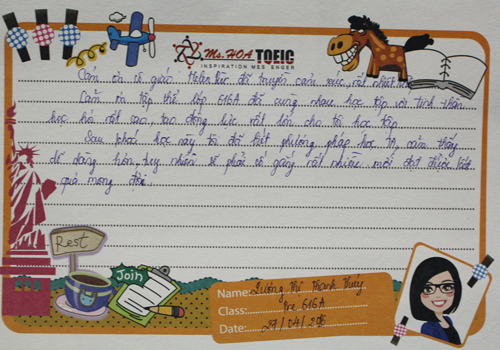 Ms. HOA TOEIC
INSPIRATION MESSENGER
Cảm ơn cô giáo đã truyền cảm xúc, rất nhiệt
Cảm ơn tập thể lớp 616A đã cùng nhau học tập với tinh thần
học hỏi rất cao, tạo động lực rất lớn cho tôi học tập
Sau khoá học này tôi đã biết phương pháp học TA, cảm thấy
dễ dàng hơn, tuy nhiên sẽ phải cố gắng rất nhiều mới đạt được kết
quả mong đợi
Rest
Join
Name: Lương Thị Thanh Thúy
Class: Pre 616A
Date: 27/04/